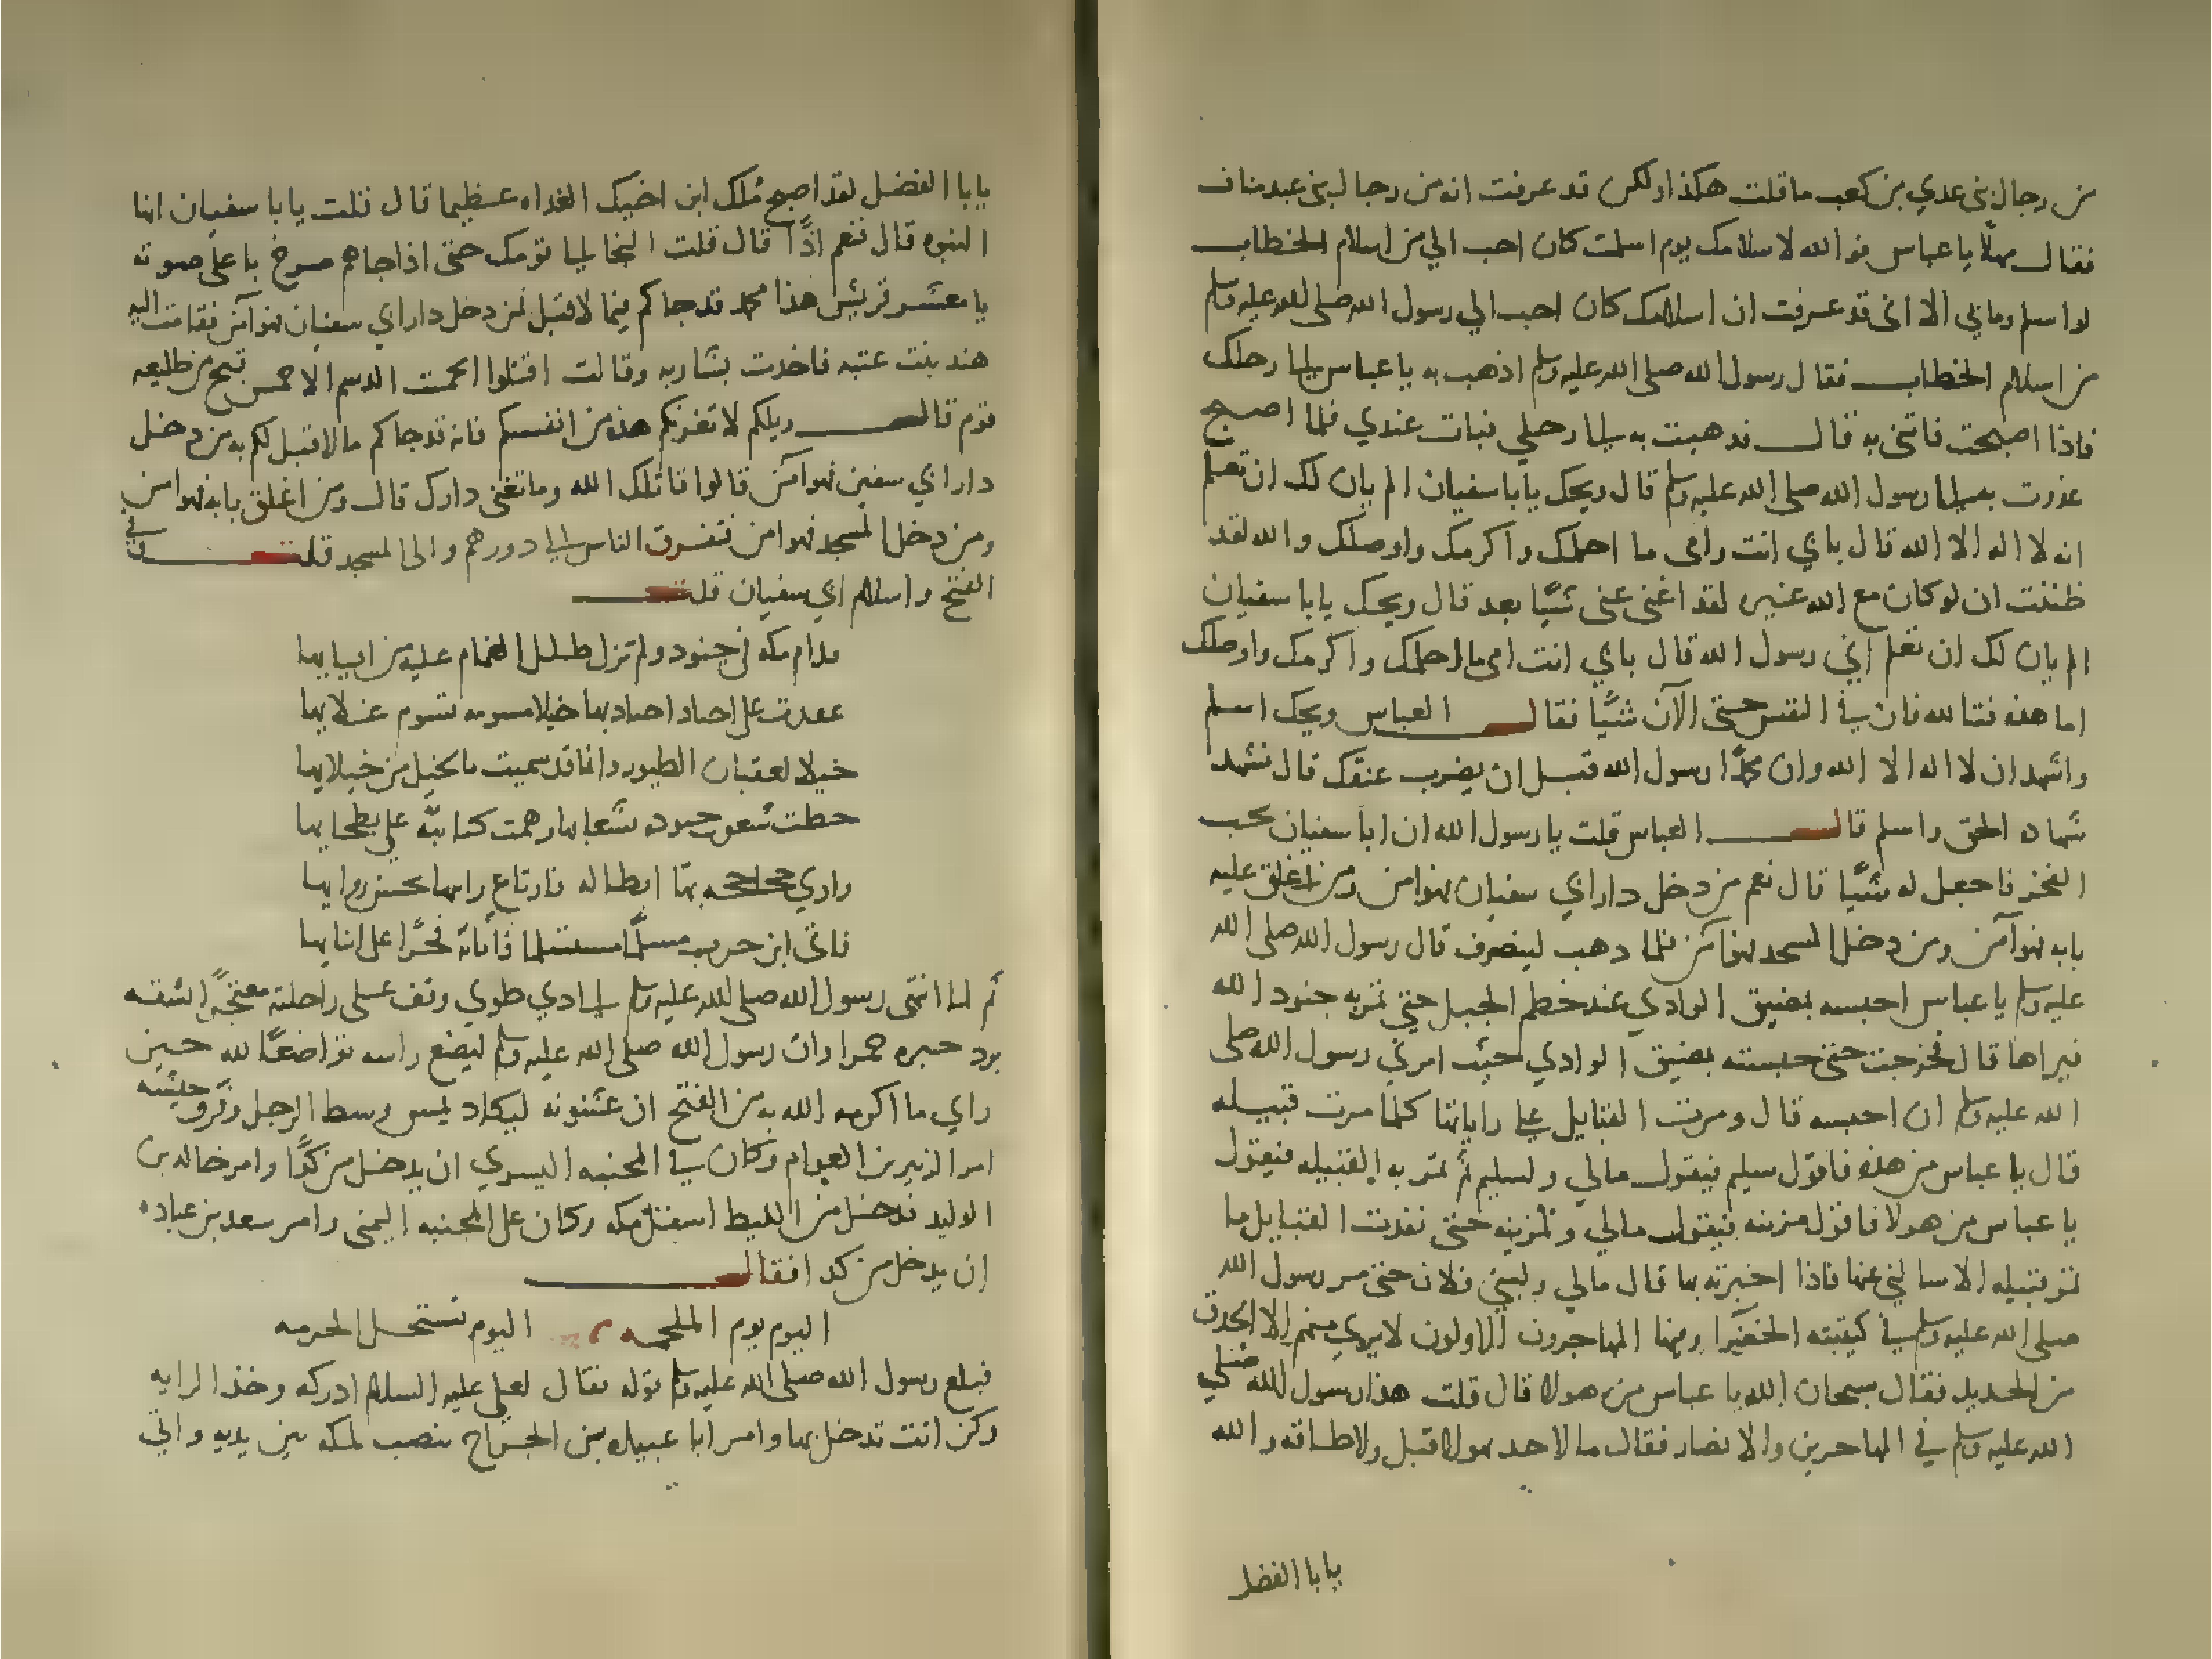 من رجال بني عدي بن كعب ما قلت هكذا ولكن قد عرفت انه من رجال بني عبد مناف
فقال مهلًا يا عباس فوالله لاسلامك يوم اسلمت كان احب الي من اسلام الخطاب
لو اسلم وما بي الا اني قد عرفت ان اسلامك كان احب الي رسول الله صلى الله عليه وسلم
من اسلام الخطاب فقال رسول الله صلى الله عليه وسلم اذهب به يا عباس الى رحلك
فاذا اصبحت فاتني به قال فذهبت به الى رحلي فبات عندي فلما اصبح
غدوت به الى رسول الله صلى الله عليه وسلم قال ويحك يابا سفيان الم يان لك ان تعلم
انه لا اله الا الله قال بابي انت وامي ما احملك واكرمك واوصلك والله لقد
ظننت ان لو كان مع الله غيره لقد اغنى عني شيًا بعد قال ويحك يابا سفيان
الم يان لك ان تعلم اني رسول الله قال بابي انت امي ما احملك واكرمك واوصلك
اما هذه فتالله فان في النفس حتى الآن شيًا فقال العباس ويحك اسلم
واشهد ان لا اله الا الله وان محمدًا رسول الله قبل ان يضرب عنقك قال فشهد
شهاده الحق واسلم قال العباس قلت يا رسول الله ان ابا سفيان يحب
الفخر فاجعل له شيًا قال نعم من دخل دار ابي سفيان فهو امن ومن اغلق عليه
بابه فهو آمن ومن دخل المسجد فهو آمن فلما دهب لينصرف قال رسول الله صلى الله
عليه وسلم يا عباس احبسه بمضيق الوادي عند خطم الجبل حتى تمر به جنود الله
فيراها قال فخرجت حتى حبسته بمضيق الوادي حيث امرني رسول الله صلى
الله عليه وسلم ان احبسه قال ومرت القبايل على راياتها كلما مرت قبيله
قال يا عباس من هذه فاقول سليم فيقول مالي ولسليم ثم تمر به القبيله فيقول
يا عباس من هولا فاقول مزينه فيقول مالي ولمزينه حتى نفذت القبايل ما
تمر قبيله الا سالني عنها فاذا اخبرته بها قال مالي ولبني فلان حتى مر رسول الله
صلى الله عليه وسلم في كتيبته الخضرا وفيها المهاجرون الاولون لا يرى منهم الا الحدق
من الحديد فقال سبحان الله يا عباس من هولا قال قلت هذا رسول الله صلى
الله عليه وسلم في المهاجرين والانصار فقال ما لاحد بهولا قبل ولا طاقه والله
يابا الفضل
يابا الفضل لقد اصبح مُلك ابن اخيك الغداه عظيما قال قلت يابا سفيان انها
النبوه قال فنعم اذًا قال قلت النجا الى قومك حتى اذا جاهم صرخ با على صوته
يا معشر قريش هذا محمد قد جاكم فيما لا قبل لكم فمن دخل دار ابي سفيان فهو آمن فقامت اليه
هند بنت عتبه فاخذت بشاربه وقالت اقتلوا الحمت الدسم الاحمس قبح من طليعه
قوم قال ويلكم لا تغرنكم هذه من انفسكم فانه قد جاكم ما لا قبل لكم به من دخل
دار ابي سفين فهو امن قالوا قاتلك الله وما تغني دارك قال ومن اغلق بابه فهو امن
ومن دخل المسجد فهو امن فتفرق الناس الى دورهم والى المسجد قلت في
الفتح واسلام ابي سفيان قلت
مدام مكه في جنود ولم تزل ظلل الغمام عليه من
خيلا لعقبان الطيور وانما قد سميت
فاتى ابن حرب مسلمًا مستسلما
ثم لما انتهى رسول الله صلى الله عليه وسلم الى ذي طوي وقف على راحلته معتجرًا بشقه
برد حبره حمرا وان رسول الله صلى الله عليه وسلم ليضع راسه تواضعًا لله حين
راي ما اكرمه الله به من الفتح ان عثنونه ليكاد يمس وسط الرحل
امر الزبير بن العوام وكان في المجنبه اليسري ان يدخل من كدًا وامر خالد بن
الوليد فدخل من الليط اسفل مكه وكان على المجنبه اليمنى وامر سعد بن عباده
ان يدخل من كدا فقال
اليوم يوم الملحمه اليوم تستحل الحرمه
فبلغ رسول الله صلى الله عليه وسلم قوله فقال لعلي عليه السلام ادركه وخذ الرايه
وكن انت تدخل بها وامر ابا عبيده بن الجراح فنصب لمكه بين يديه واتي